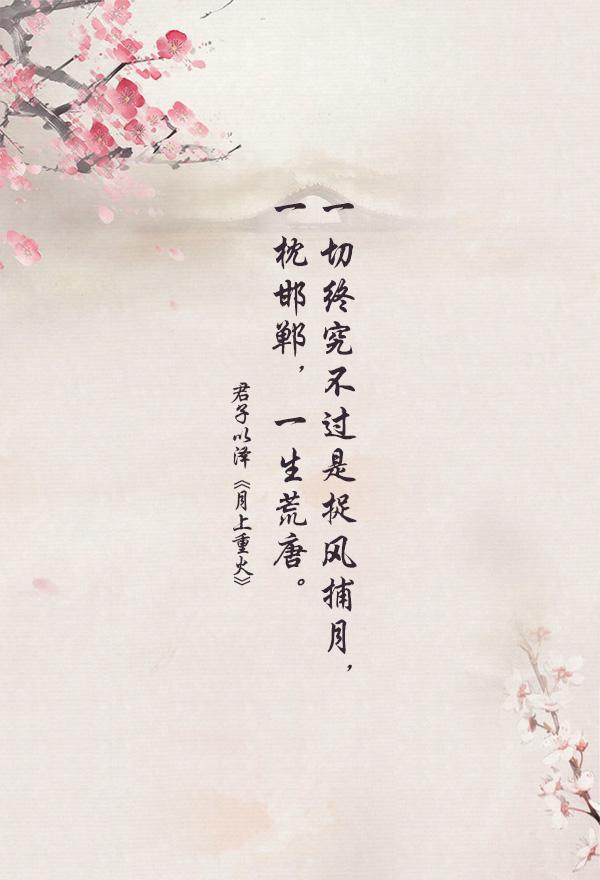 一切终究不过是捉风捕月，
一枕邯郸，一生荒唐。
君子以泽《月上重火》